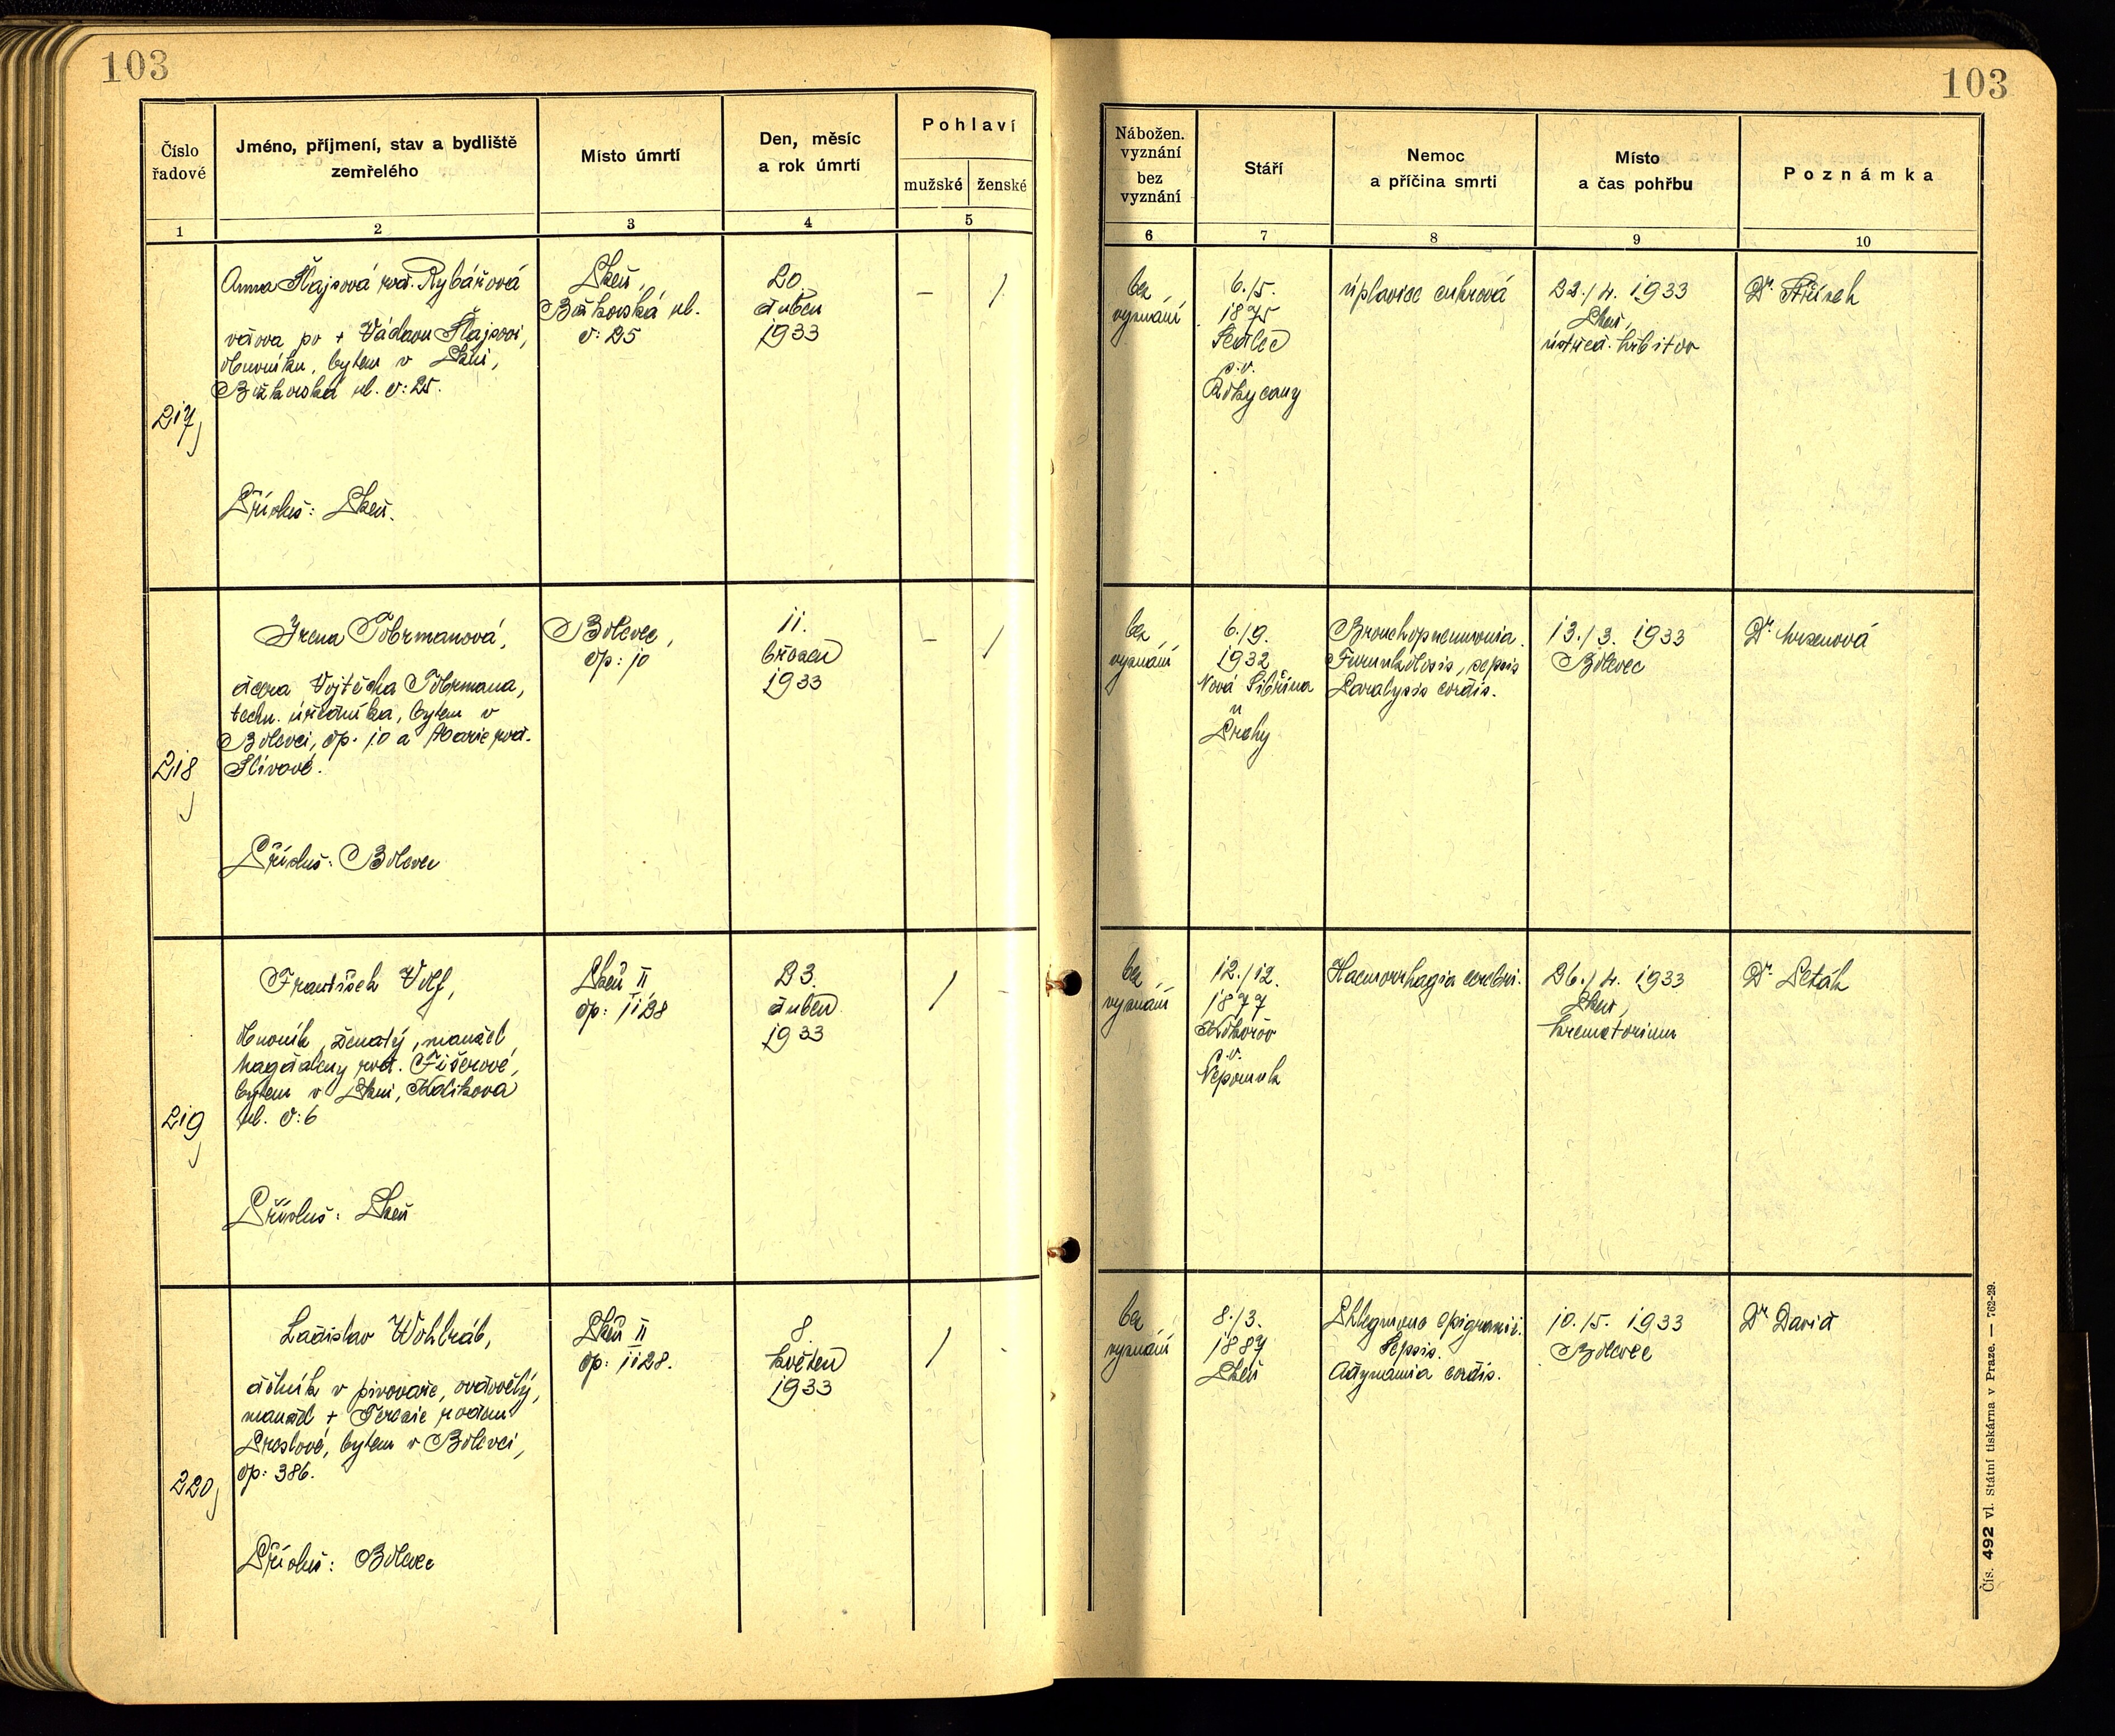 103
Číslo
řadové
Jméno, příjmení, stav a bydliště
zemřelého
Místo úmrtí
Den, měsíc
a rok úmrtí
Pohlaví
mužské
ženské
1
2
3
4
5
217
Anna Hajsová roz. Rybářová
vdova po + Václavu Hajsovi,
obuvníku, bytem v Plzni,
Božkovská ul. č: 25.
Přísluš: Plzeň.
Plzeň,
Božkovská ul.
č: 25
20.
duben
1933
–
1
218
Irena Tobrmanová,
dcera Vojtěcha Tobrmana,
techn. úředníka, bytem v
Bolevci, čp. 10 a Marie roz.
Slívové.
Přísluš: Bolevec
Bolevec,
čp: 10
11.
březen
1933
–
1
219
František Wolf,
obuvník, ženatý, manžel
Magdaleny roz. Fišerové,
bytem v Plzni, Kolikova
ul. č: 6
Přísluš: Plzeň
Plzeň II
čp: 1128
23.
duben
1933
1
-
220
Ladislav Wohlráb,
dělník v pivovaře, ovdovělý,
manžel + Terezie rozem
Preslové, bytem v Bolevci,
čp: 386.
Přísluš: Bolevec
Plzeň II
čp: 1128.
8.
květen
1933
1
-
103
Nábožen.
vyznání
bez
vyznání
Stáří
Nemoc
a příčina smrti
Místo
a čas pohřbu
Poznámka
6
7
8
9
10
bez
vyznání
6./5.
1875
Sedlec
p.v.
Rokycany
úplavice cukrová
22./4. 1933
Plzeň,
ústřed. hřbitov
Dr.
bez
vyznání
6./9.
1932
Nová Sibřina
u
Prahy
Bronchopneumonia.
Furunkolosis, sepsis
Paralysis cordis.
13./3. 1933
Bolevec
Dr.
bez
vyznání
12./12.
1877
p.v.
Nepomuk
Haemorrhagia cerebri.
26./4. 1933
Plzeň,
krematorium
Dr. Leták
bez
vyznání
8./3.
1887
Plzeň
Phlegmona
Sepsis.
Adynamia cordis.
10./5. 1933
Bolevec
Dr David
Čís. 492 vl. Státní tiskárna v Praze. — 762-29.